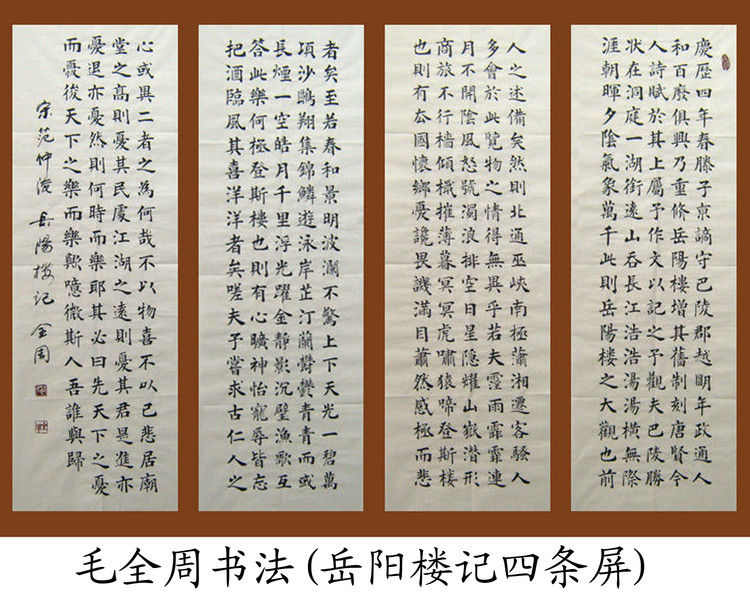 慶歷四年春滕子京謫守巴陵郡越明年政通人
和百廢俱興乃重修岳陽樓增其舊制刻唐賢今
人詩賦於其上屬予作文以記之予觀夫巴陵勝
狀在洞庭一湖銜遠山吞長江浩浩湯湯橫無際
涯朝暉夕陰氣象萬千此則岳陽樓之大觀也前
人之述備矣然則北通巫峽南極瀟湘遷客騷人
多會於此覽物之情得無異乎若夫霪雨霏霏連
月不開陰風怒號濁浪排空日星隱耀山嶽潛形
商旅不行檣傾檝摧薄暮冥冥虎嘯猿啼登斯樓
也則有去國懷鄉憂讒畏譏滿目蕭然感極而悲
者矣至若春和景明波瀾不驚上下天光一碧萬
頃沙鷗翔集錦鱗遊泳岸芷汀蘭鬱鬱青青而或
長煙一空皓月千里浮光躍金靜影沉璧漁歌互
答此樂何極登斯樓也則有心曠神怡寵辱皆忘
把酒臨風其喜洋洋者矣嗟夫予嘗求古仁人之
心或異二者之為何哉不以物喜不以己悲居廟
堂之高則憂其民處江湖之遠則憂其君是進亦
憂退亦憂然則何時而樂耶其必曰先天下之憂
而憂後天下之樂而樂歟噫微斯人吾誰與歸
宋范仲淹岳陽樓記 全周
毛全周书法(岳阳楼记四条屏)